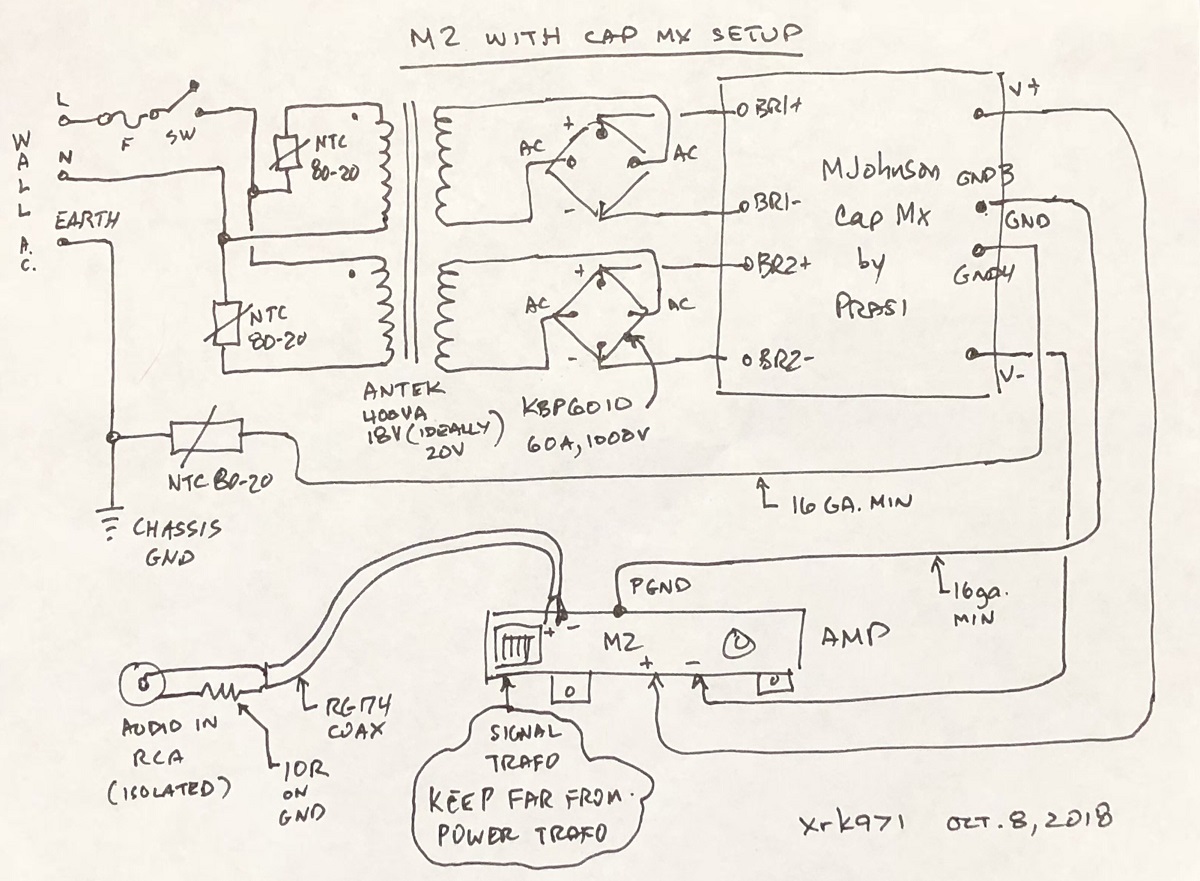 M2 WITH CAP MX SETUP
WALL A.C.
L
F
SW
N
EARTH
NTC
80-20
NTC
80-20
AC
+
AC
-
AC
+
AC
-
BR1+
BR1-
BR2+
BR2-
MJohnson
Cap Mx
by
PRASI
V+
GND3
GND
GND4
V-
ANTEK
400VA
18V (IDEALLY)
20V
KBPC6010
60A, 1000V
NTC 80-20
16 GA. MIN
CHASSIS
GND
PGND
16ga.
MIN
+ -
M2
+ -
AMP
RG174
COAX
AUDIO IN
RCA
(ISOLATED)
10R
ON
GND
SIGNAL
TRAFO
KEEP FAR FROM
POWER TRAFO
xrk971 OCT. 8, 2018